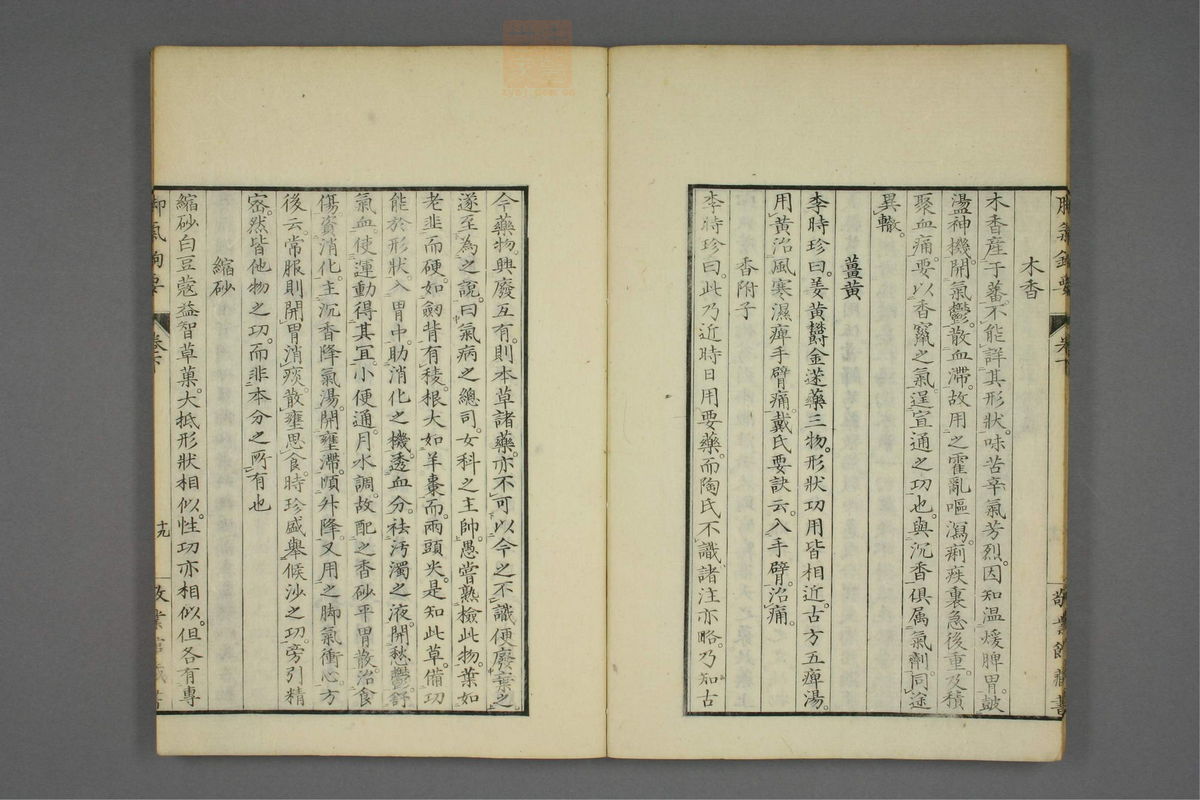 木香
木香産于蕃。不能詳其形狀。味苦辛氣芳烈。因知温煖脾胃。鼓
盪神機。開氣鬱。散血滯。故用之霍亂嘔瀉。痢疾裏急後重。及積
聚血痛。要以香竄之氣。逞宣通之功也。與沉香俱属氣劑。同途
異轍。
薑黄
李時珍曰。姜黄欝金蒁藥三物。形狀功用皆相近。古方五痺湯。
用黄治風寒濕痺手臂痛。戴氏要訣云。入手臂。治痛。
香附子
李時珍曰。此乃近時日用要藥。而陶氏不識。諸注亦略。乃知古
今藥物興廢互有。則本草諸藥。亦不可以今之不識便廢棄之
遂至為之說。曰氣病之總司。女科之主帥。愚嘗熟檢此物。葉如
老韭而硬。如劒背有稜。根大如羊棗而兩頭尖。是知此草。備功
能於形狀。入胃中。助消化之機。透血分。祛汚濁之液。開愁鬱。舒
氣血使運動得其宜。小便通。月水調。故配之香砂平胃散。治食
傷。資消化。主沉香降氣湯。開壅滯。順升降。又用之脚氣衝心。方
後云。常服則開胃消痰。散壅思食。時珍盛舉候沙之功。旁引精
密。然皆他物之功。而非本分之所有也
縮砂
縮砂白豆蔻益智草菓。大抵形狀相似。性功亦相似。但各有專
卷下
十九